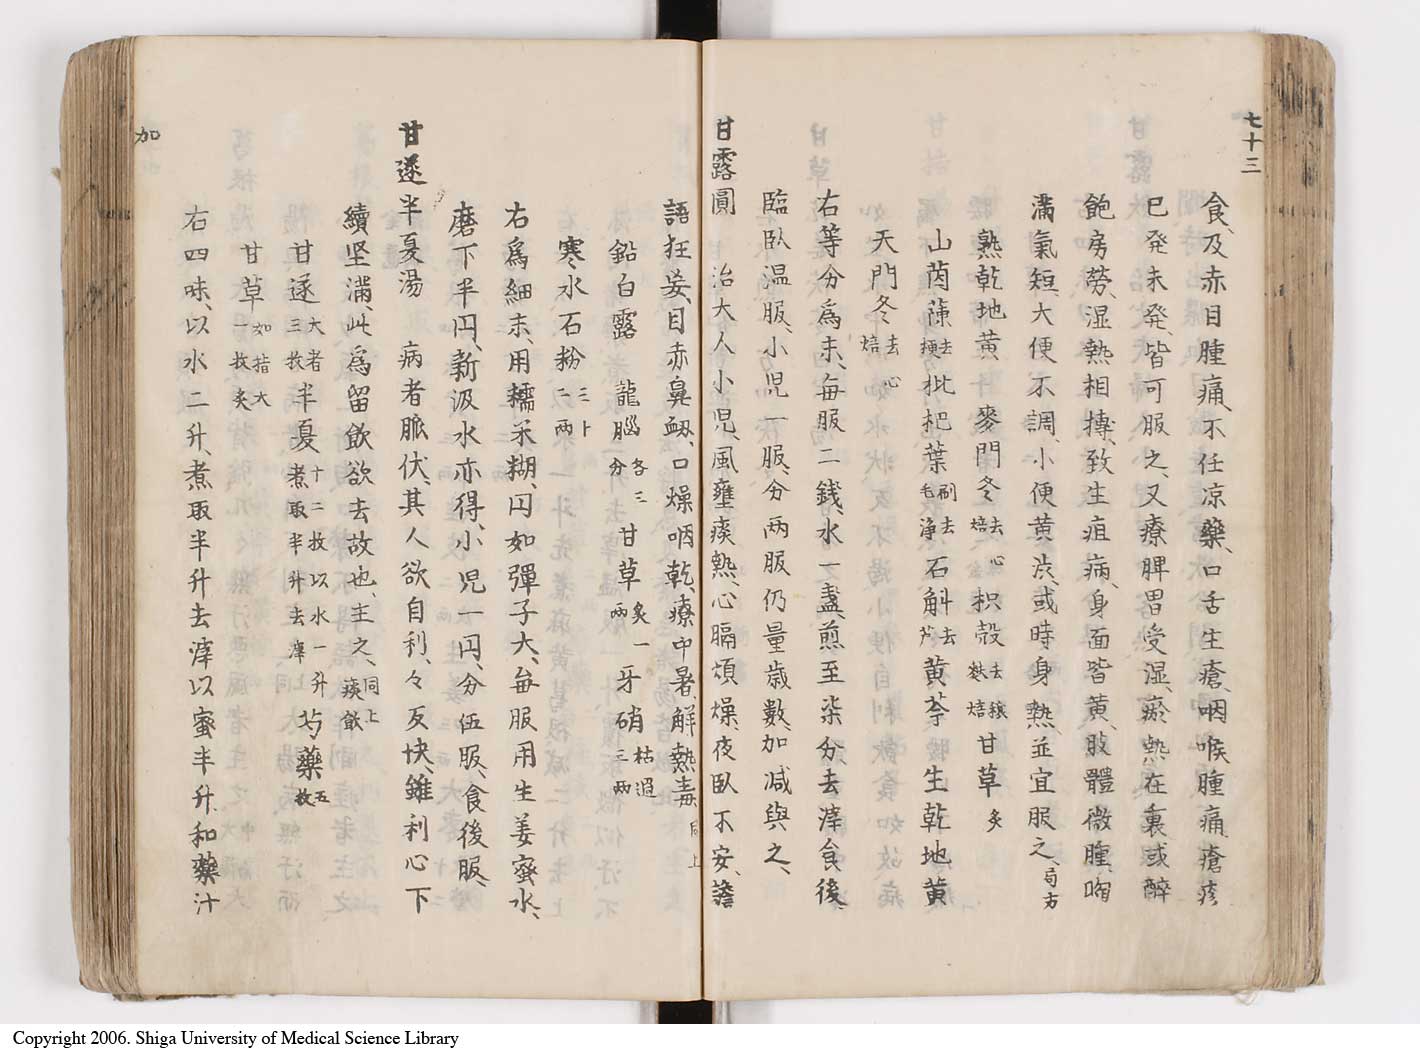 七十三
食、及赤目腫痛、不任凉藥、口舌生瘡、咽喉腫痛、瘡疹
已発未発、皆可服之、又療脾胃受湿、瘀熱在裏或醉
飽房勞、湿熱相搏、致生疸病、身面皆黄、肢體微腫、胸
満氣短、大便不調、小便黄渋、或時身熱並宜服之、局方
熟乾地黄、麥門冬去心焙 枳殻去穰麩焙 甘草炙
山茵蔯去梗 枇杷葉刷去毛浄 石斛去芦 黄芩 生乾地黄
天門冬去心焙
右等分爲末、毎服二錢、水一盞、煎至柒分去滓食後
臨臥温服、小児一服、分兩服仍量歳數、加减與之、
甘露圓 治大人小児、風壅痰熱、心膈煩燥、夜臥不安、譫
語狂妄、目赤鼻衂、口燥咽乾、療中暑、解熱毒同上
鉛白露 龍腦各三分 甘草炙一兩 牙硝枯過三兩
寒水石粉三十二兩
右爲細末、用糯米糊、円如彈子大、毎服用生姜蜜水、
磨下半円、新汲水亦得、小児一円、分伍服、食後服、
甘遂半夏湯 病者脈伏、其人欲自利、々反快、雖利心下
續坚満、此爲留飲欲去故也、主之、同上痰飲
甘遂大者三枚 半夏十二枚以水一升煮取半升去滓 芍藥五枚
甘草如指大一枚炙
右四味、以水二升、煮取半升去滓以蜜半升和藥汁
加